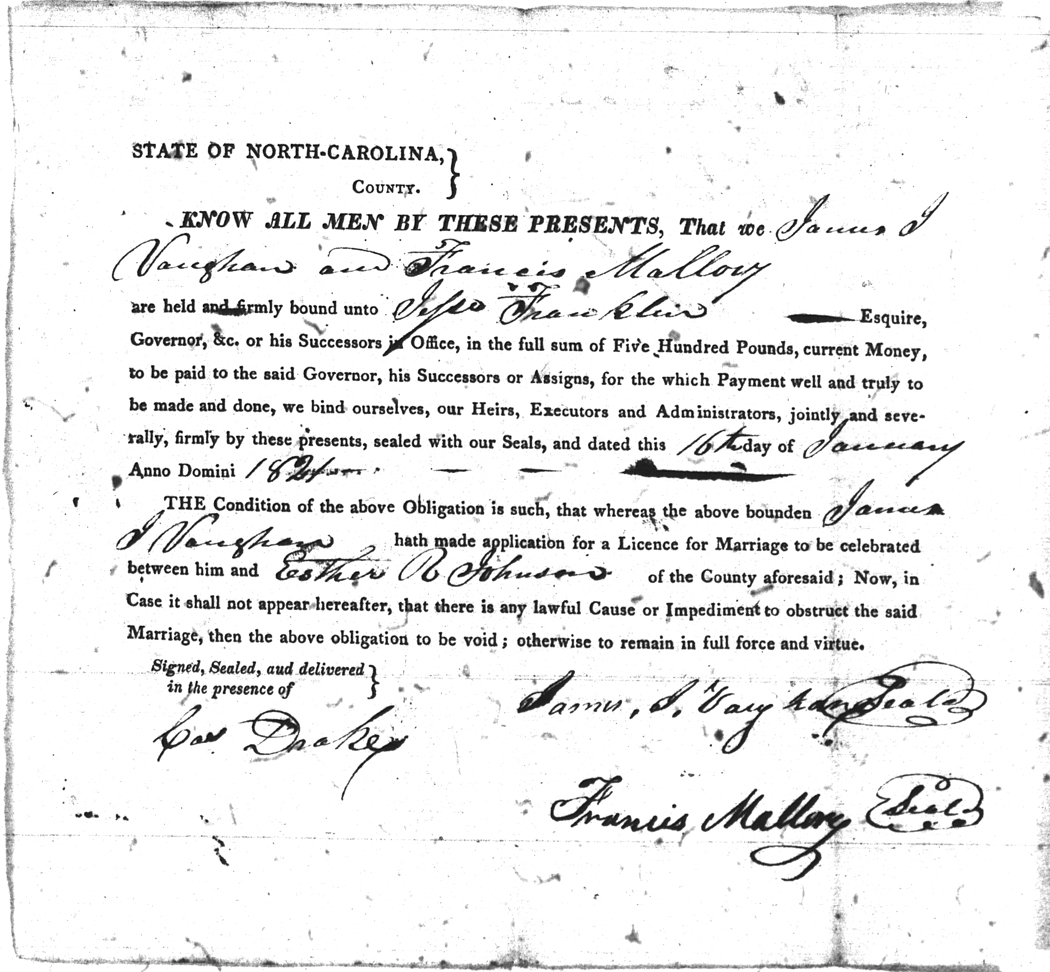 STATE OF NORTH-CAROLINA, }
COUNTY.
KNOW ALL MEN BY THESE PRESENTS, That we James J
Vaughan and Francis Mallory
are held and firmly bound unto Jesse Franklin Esquire,
Governor, &c. or his Successors in Office, in the full sum of Five Hundred Pounds, current Money,
to be paid to the said Governor, his Successors or Assigns, for the which Payment well and truly to
be made and done, we bind ourselves, our Heirs, Executors and Administrators, jointly and seve-
rally, firmly by these presents, sealed with our Seals, and dated this 16th day of January
Anno Domini 1821
THE Condition of the above Obligation is such, that whereas the above bounden James
J Vaughan hath made application for a Licence for Marriage to be celebrated
between him and Esther R Johnson of the County aforesaid; Now, in
Case it shall not appear hereafter, that there is any lawful Cause or Impediment to obstruct the said
Marriage, then the above obligation to be void; otherwise to remain in full force and virtue.
Signed, Sealed, aud delivered }
in the presence of
James, J, Vaughan Seal
Drake
Francis Mallory Seal